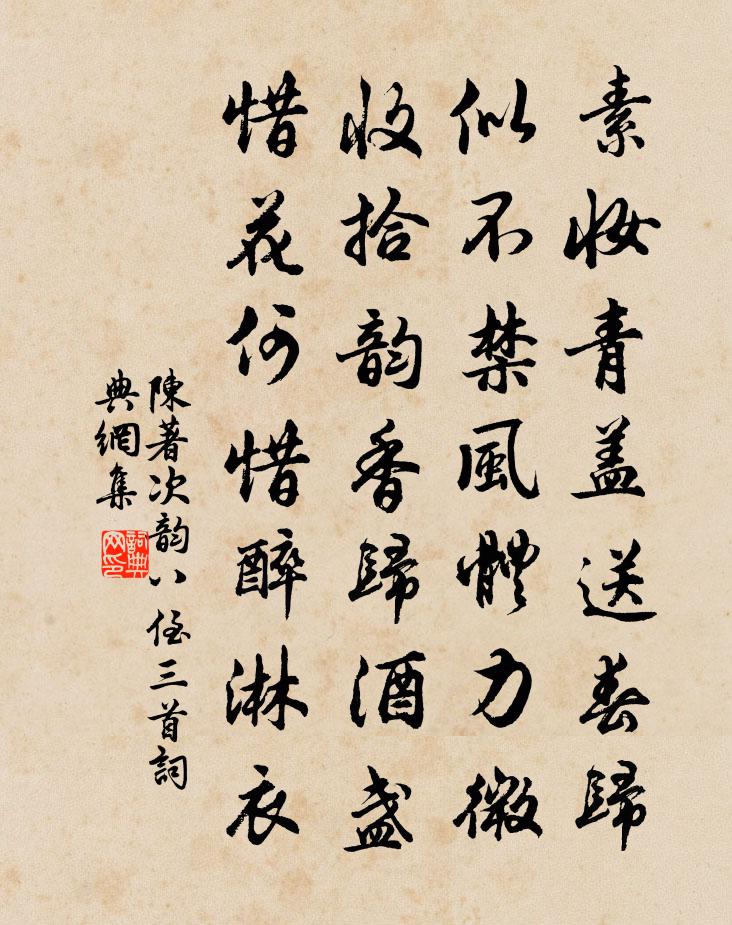 素妝青盖送春歸
似不禁風體力微
收拾韵香歸酒盏
惜花何惜醉淋衣
陳著次韵八侄三首詞
典網集
詞典
网印